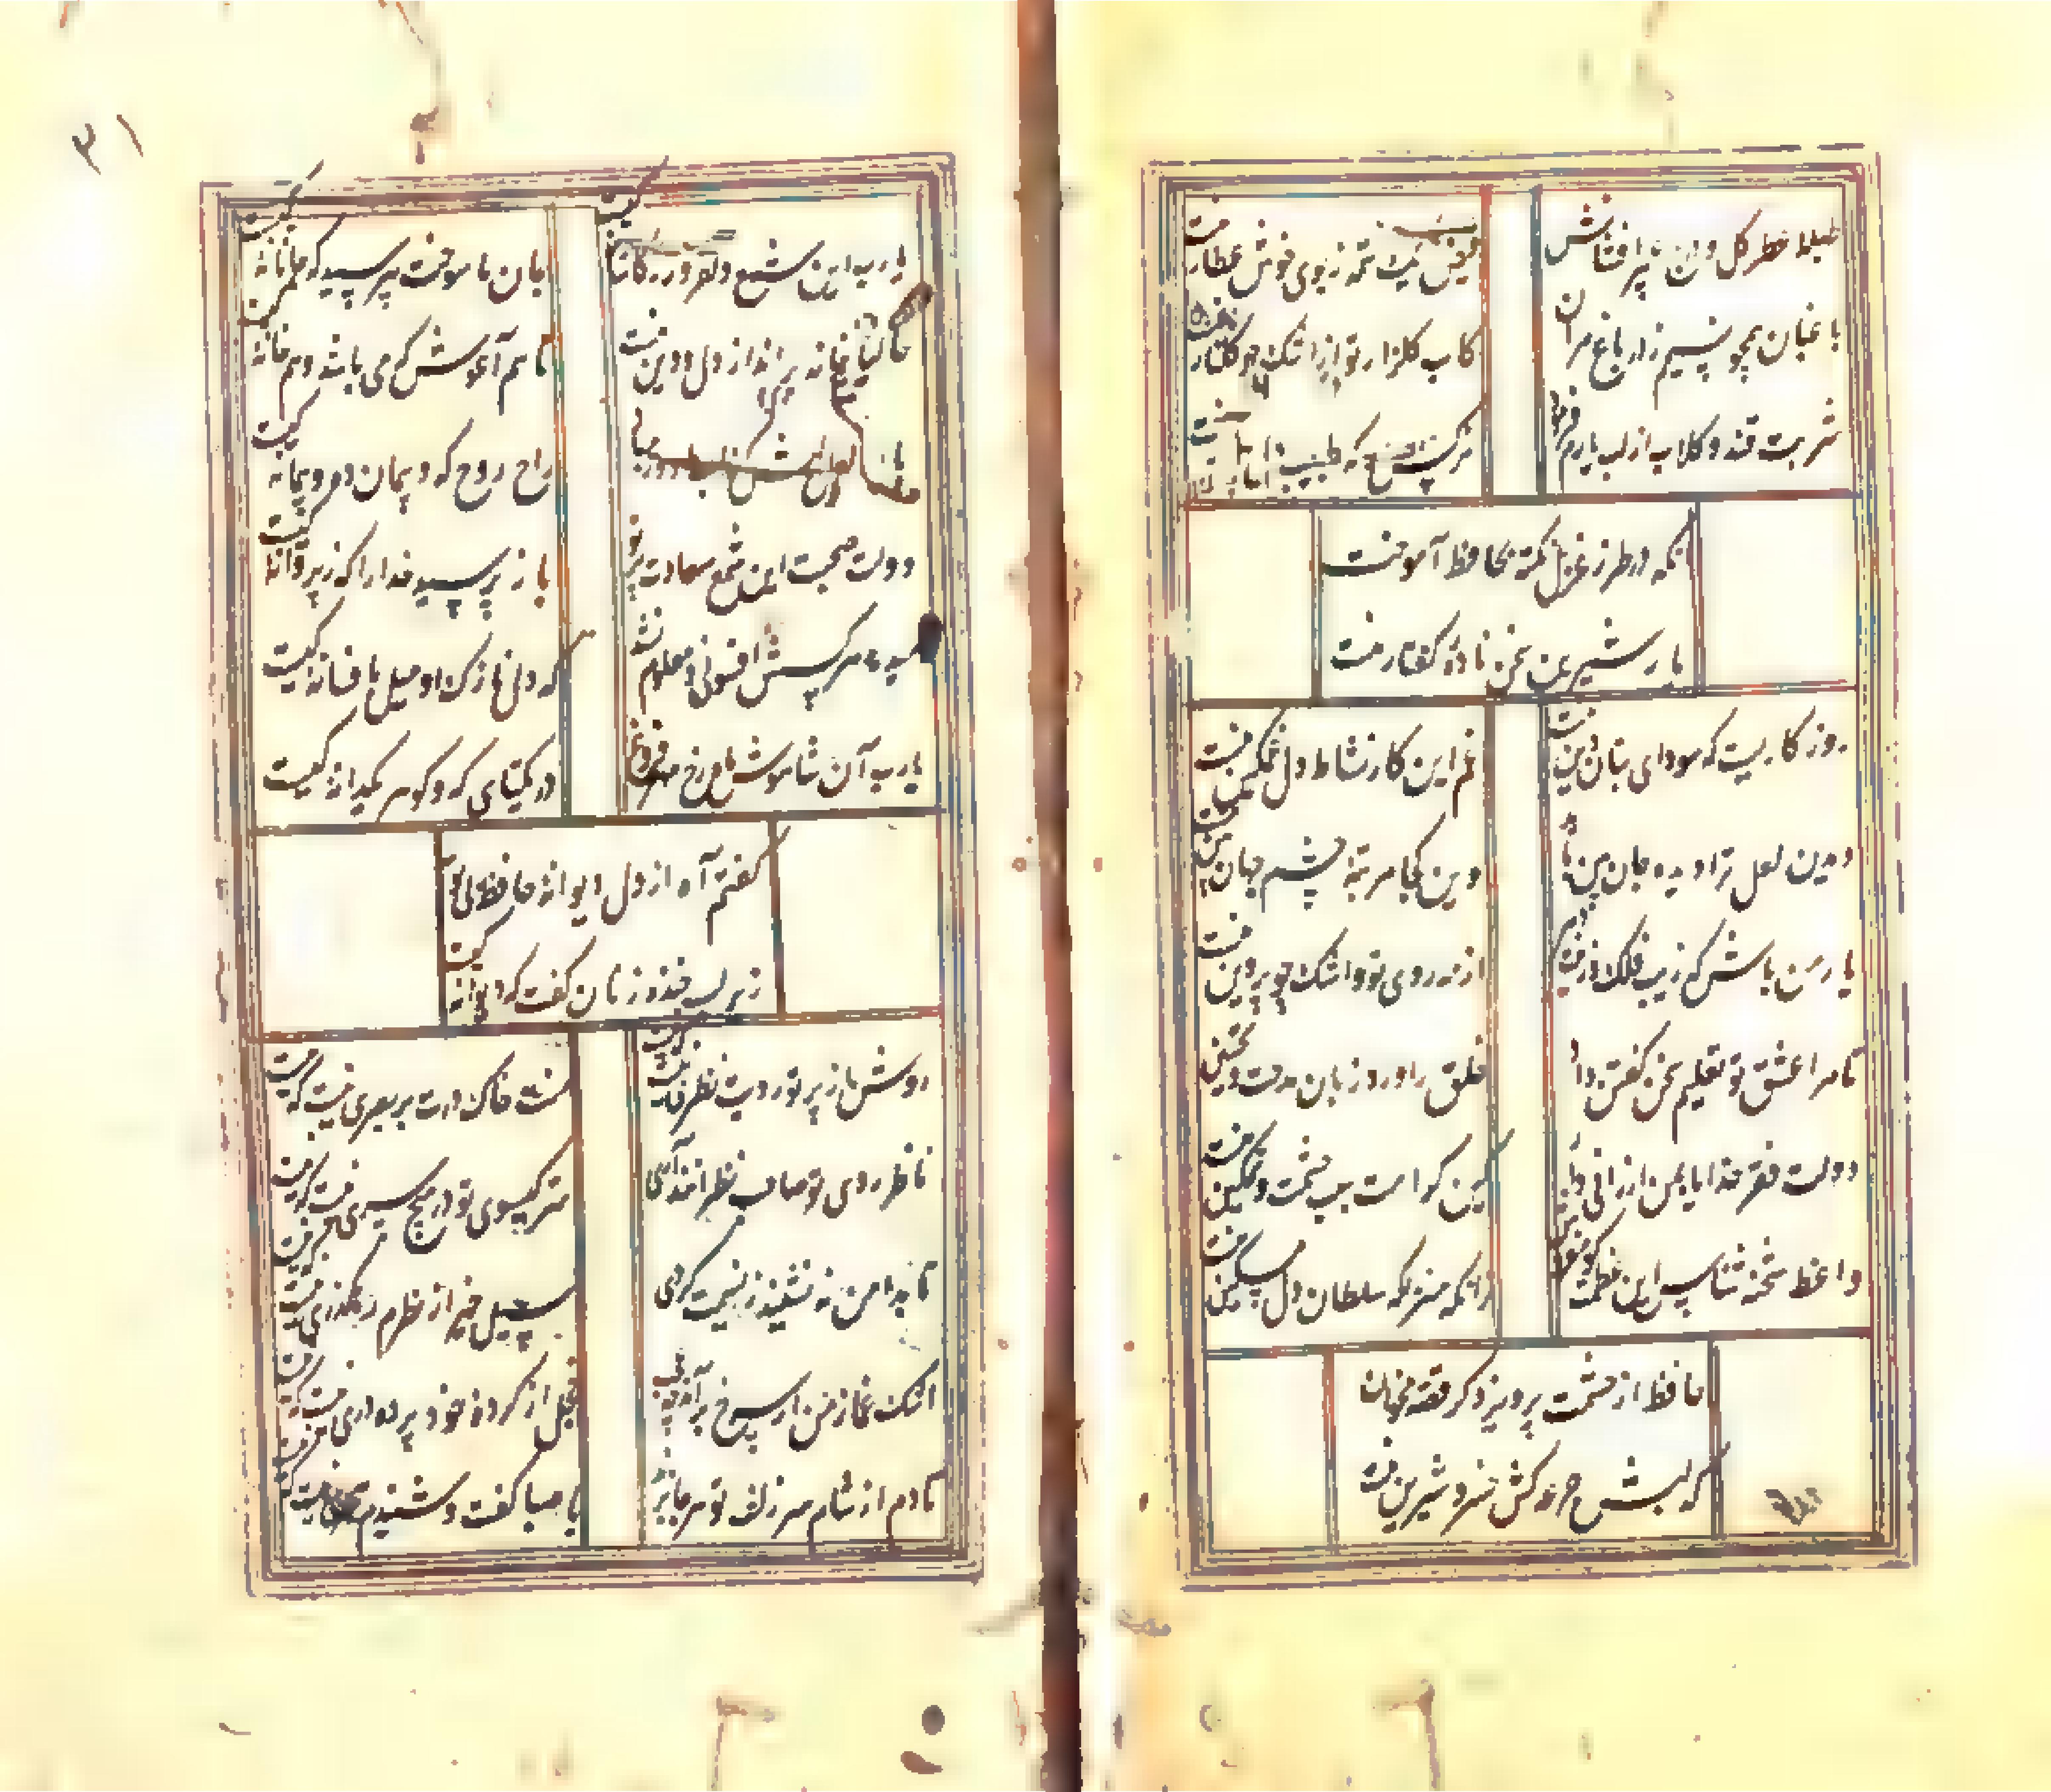 باغبان همچو نسیم ز در باغ مران کاب گلزار تو از اشک چو گلنار
شربت قند و گلاب از لب یارم فرمود نرگس که طبیب دل
آنکه در طرز غزل نکته بحافظ آموخت
یار شیرین سخن نادره گفتار منست
روزگاریست که سودای بتان دین منست غم این کار نشاط دل غمگین منست
دیدن لعل ترا دیده جان بین باید وین کجا مرتبه چشم جهان بین منست
یار من باش که زیب فلک و زینت دهر از مه روی تو و اشک چو پروین منست
تا مرا عشق تو تعلیم سخن گفتن داد خلق را ورد زبان مدحت و تحسین منست
دولت فقر خدایا بمن ارزانی دار کین کرامت سبب حشمت و تمکین منست
واعظ شحنه شناس این عظمت گو مفروش زانکه منزلگه سلطان دل مسکین منست
حافظ از حشمت پرویز دگر قصه مخوان
که لبش جرعه کش خسرو شیرین منست
۳۱
یارب این شمع دلفروز ز کاشانه کیست جان ما سوخت بپرسید که جانانه کیست
حالیا خانه برانداز دل و دین منست تا هم آغوش که می باشد و هم خانه کیست
باده لعل لبش کز لب من دور مباد راح روح که و پیمان ده و پیمانه کیست
دولت صحبت این شمع سعادت پرتو باز پرسید خدا را که ز پروانه کیست
میدمد هر کسش افسونی و معلوم نشد که دل نازک او میل بافسانه کیست
یارب آن شاهوش ماه رخ مهر فروغ در یکتای که و گوهر یکدانه کیست
گفتم آه از دل دیوانه حافظ بی تو
زیر لب خنده زنان گفت که دیوانه کیست
روشن از پرتو رویت نظری نیست که نیست منت خاک درت بر بصری نیست که نیست
ناظر روی تو صاحب نظرانند آری سر گیسوی تو در هیچ سری نیست که نیست
تا بدامن نه نشیند ز نسیمت گردی سیل خیز از نظرم رهگذری نیست که نیست
اشک غماز من ار سرخ برآید چه عجب خجل از کرده خود پرده دری نیست که نیست
تا دم از شام سر زلف تو هر جا نزند با صبا گفت و شنیدم سحری نیست که نیست